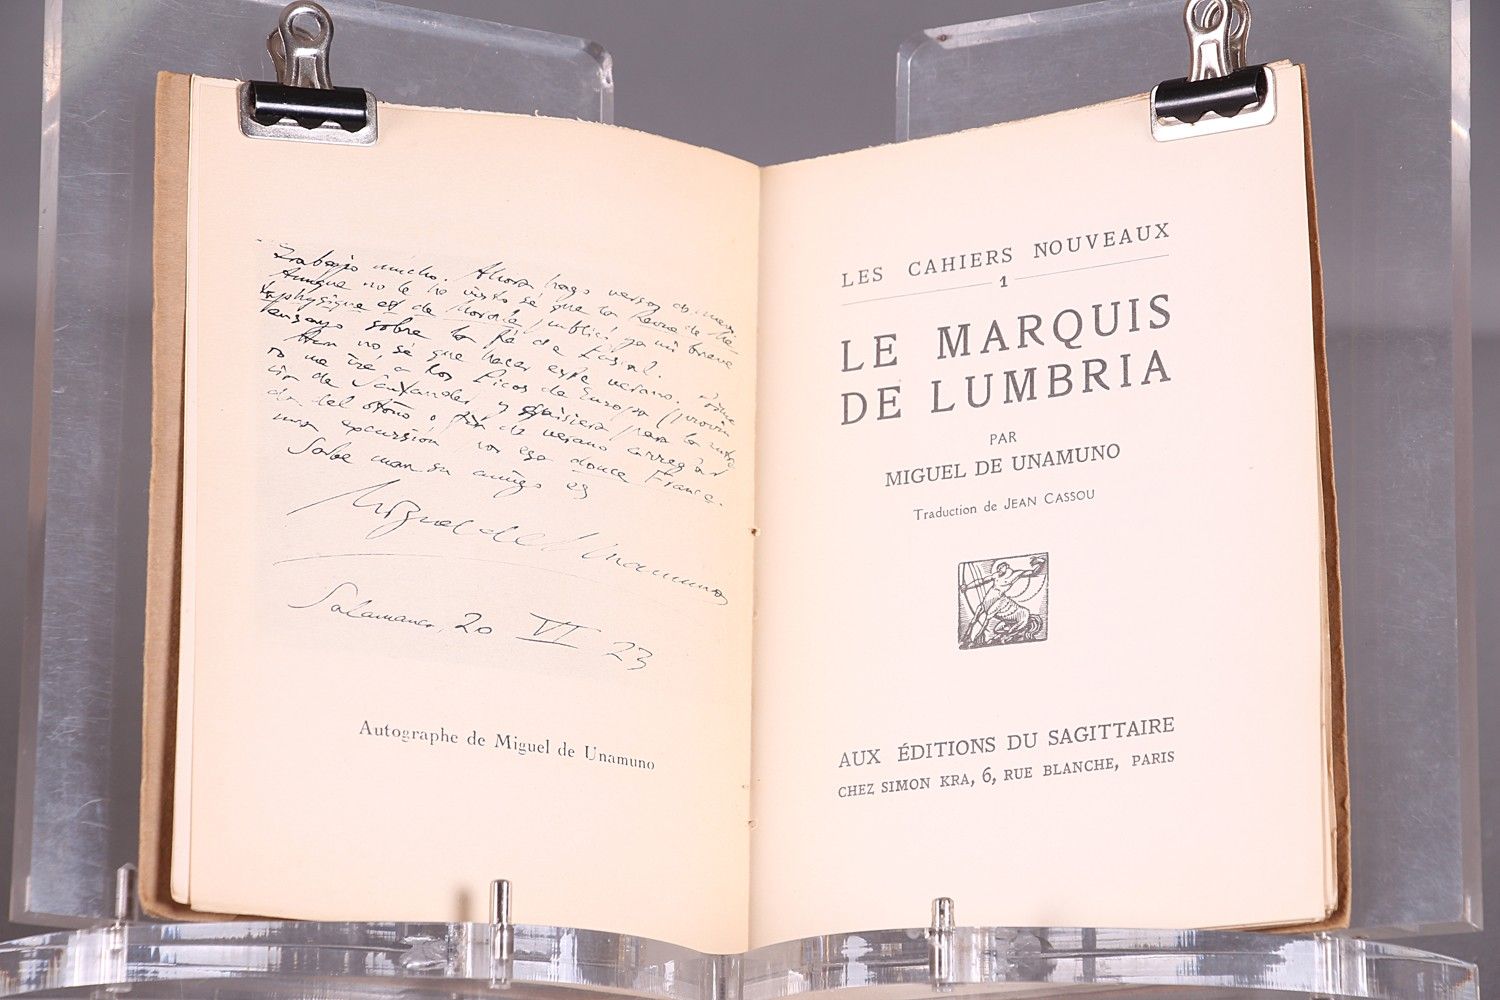 Trabajo mucho. Ahora hago versos
Aunque no le he visto sé que la Revue de Mé-
taphysique et de Morale publicó ya mi breve
ensayo sobre la fe de Pascal.
Aun no sé que hacer este verano. Prime
ro me iré a los Picos de Europa (provin
cia de Santander) y quisiera para la entra
da del otoño o fin de verano
una excursión por esa douce France.
Sabe man su amigo
Miguel de Unamuno
Salamanca, 20 VI 23
Autographe de Miguel de Unamuno
LES CAHIERS NOUVEAUX
1
LE MARQUIS
DE LUMBRIA
PAR
MIGUEL DE UNAMUNO
Traduction de JEAN CASSOU
AUX ÉDITIONS DU SAGITTAIRE
CHEZ SIMON KRA, 6, RUE BLANCHE, PARIS